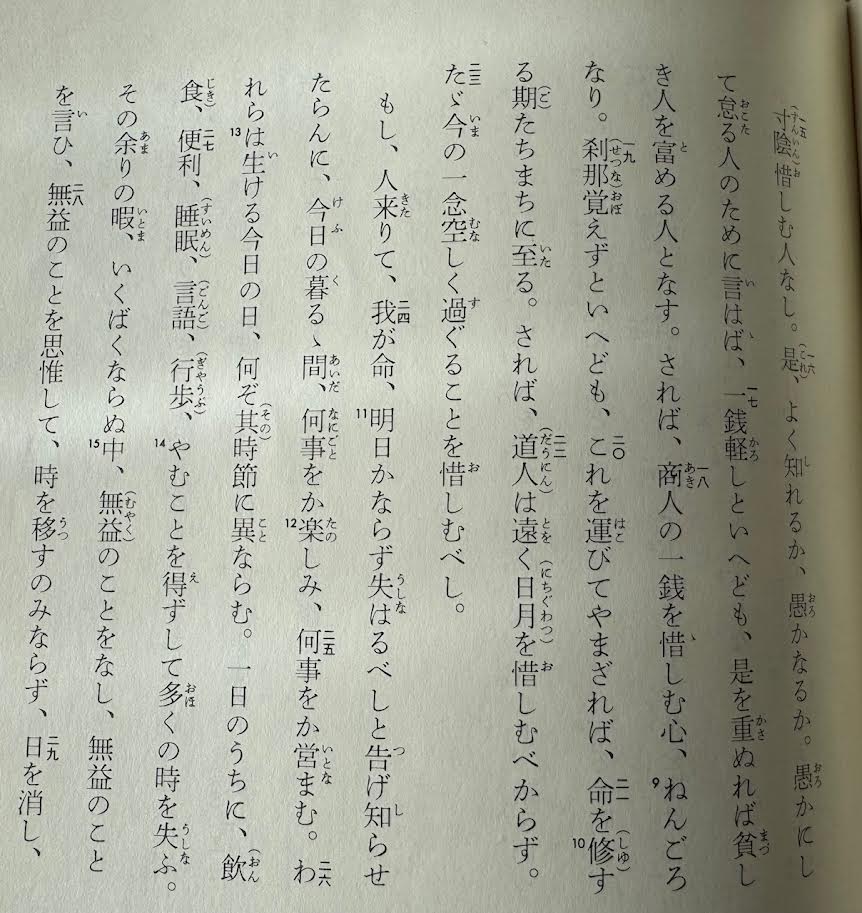 寸陰惜しむ人なし。是、よく知れるか、愚かなるか。愚かにし
て怠る人のために言はば、一銭軽しといへども、是を重ぬれば貧し
き人を富める人となす。されば、商人の一銭を惜しむ心、ねんごろ
なり。刹那覚えずといへども、これを運びてやまざれば、命を修す
る期たちまちに至る。されば、道人は遠く日月を惜しむべからず。
たゞ今の一念空しく過ぐることを惜しむべし。
もし、人来りて、我が命、明日かならず失はるべしと告げ知らせ
たらんに、今日の暮るゝ間、何事をか楽しみ、何事をか営まむ。わ
れらは生ける今日の日、何ぞ其時節に異ならむ。一日のうちに、飲
食、便利、睡眠、言語、行歩、やむことを得ずして多くの時を失ふ。
その余りの暇、いくばくならぬ中、無益のことをなし、無益のこと
を言ひ、無益のことを思惟して、時を移すのみならず、日を消し、